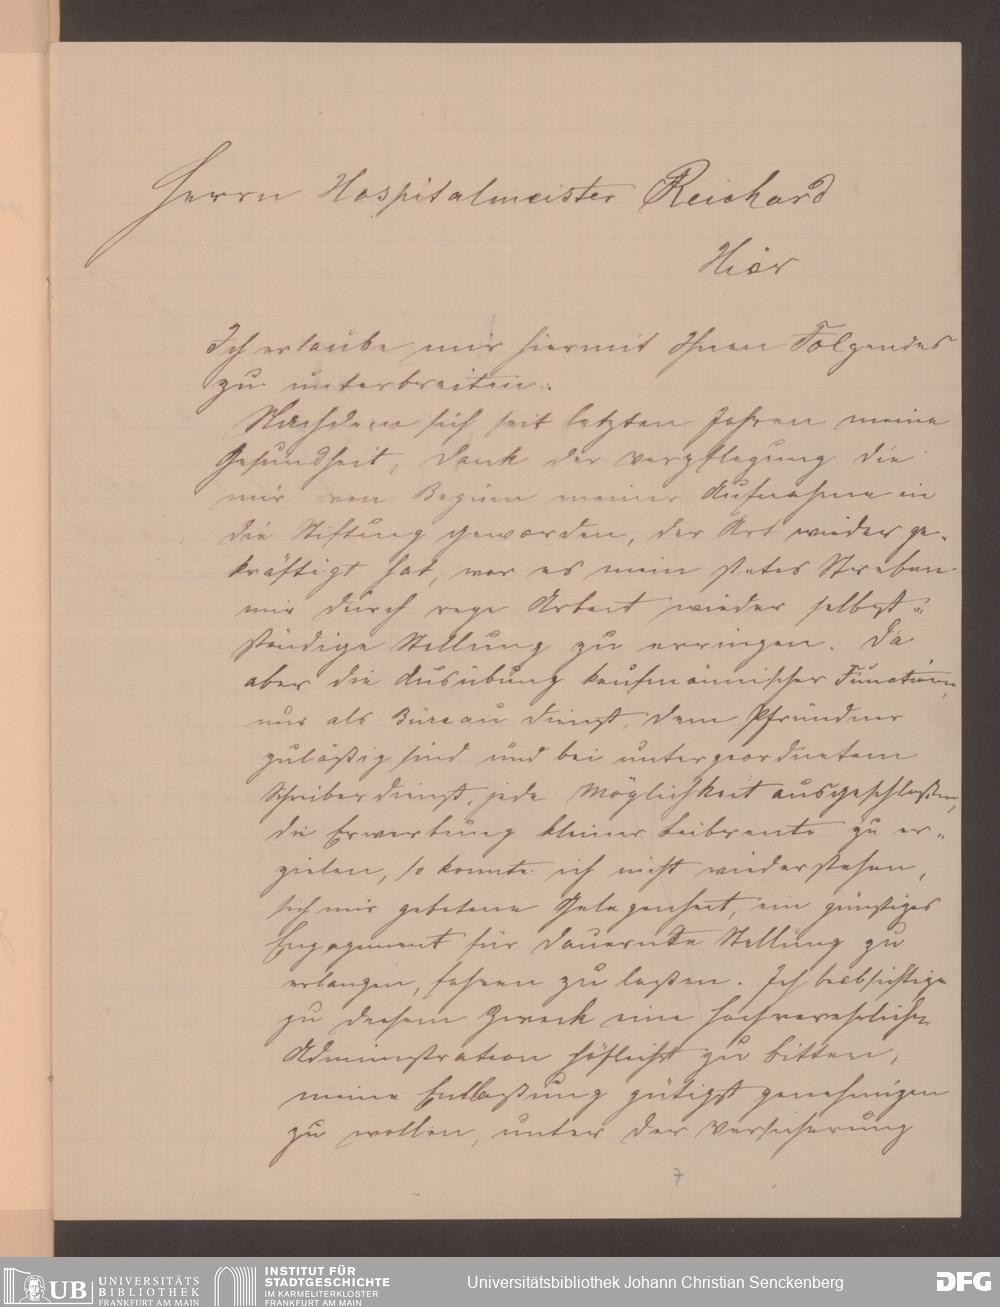 Herrn Hospitalmeister Reichard
Hier
Ich erlaube mir hiermit Ihnen Folgendes
zu unterbreiten:
Nachdem sich seit letzten Jahren meine
Gesundheit, Dank der Verpflegung die
mir von Beginn meiner Aufnahme in
die Stiftung geworden, der Art wieder ge-
kräftigt hat, war es mein stetes Streben
mir durch rege Arbeit wieder selbst-
ständige Stellung zu erringen. Da
aber die Ausübung kaufmännischer Functionen,
nur als Büreau dienst, dem Pfründner
zuläßig sind und bei untergeordnetem
Schreiberdienst, jede Möglichkeit ausgeschloßen,
die Erwerbung kleiner Leibrente zu er-
zielen, so konnte ich nicht wiederstehen,
sich mir gebotene Gelegenheit, ein günstiges
Engagement für dauernde Stellung zu
erlangen, fahren zu laßen. Ich beabsichtige
zu diesem Zweck eine hochverehrliche
Administration höflichst zu bitten,
meine Entlaßung gütigst genehmigen
zu wollen, unter der Versicherung
7
UB UNIVERSITÄTS
BIBLIOTHEK
FRANKFURT AM MAIN
INSTITUT FÜR
STADTGESCHICHTE
IM KARMELITERKLOSTER
FRANKFURT AM MAIN
Universitätsbibliothek Johann Christian Senckenberg
DFG